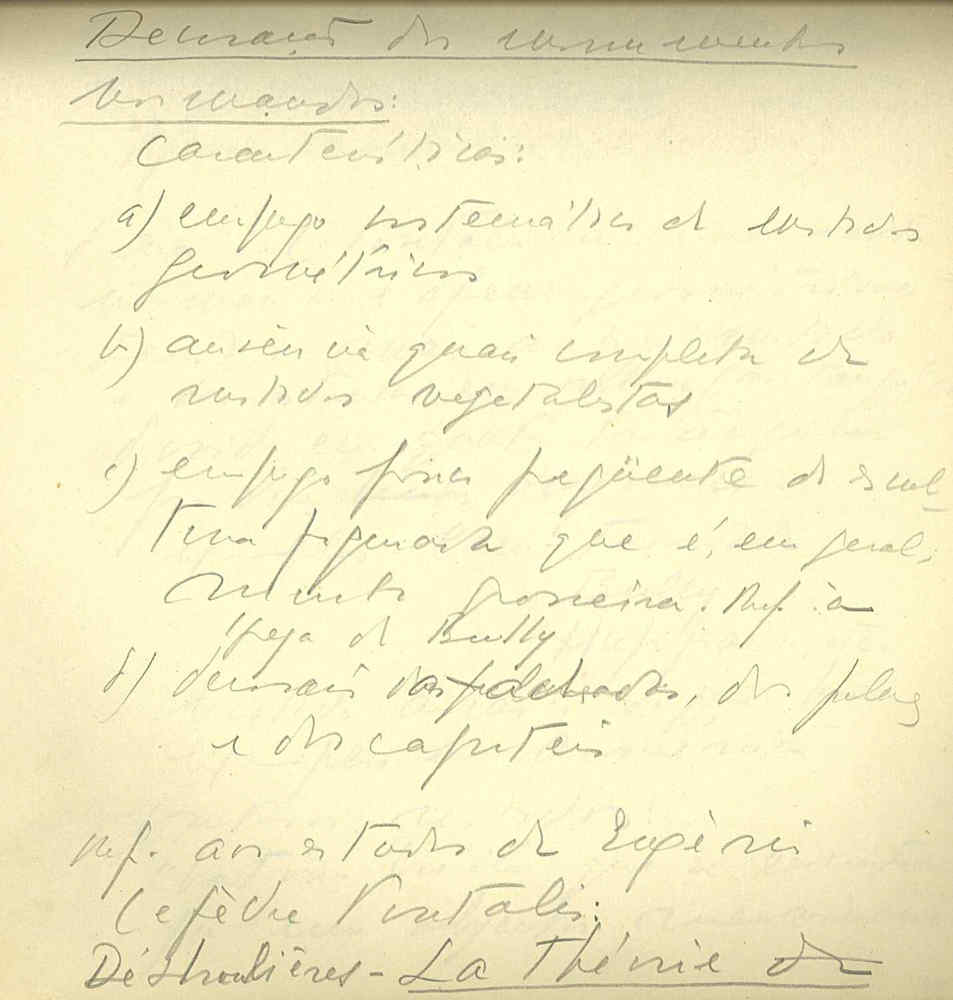 Decoração dos monumentos
normandos:
Caracteristicas:
a) emprego sistemático de motivos
geométricos
b) ausência quasi completa de
motivos vegetalistas
c) emprego pouco freqüente de escul-
tura figurada que é, em geral,
muito grosseira. Ref. à
Igreja de Rully
d) decoração das fachadas, dos
e dos capiteis
ref. aos estudos de Eugène
Lefèvre Pontalis:
Déshoulières - La Théorie de